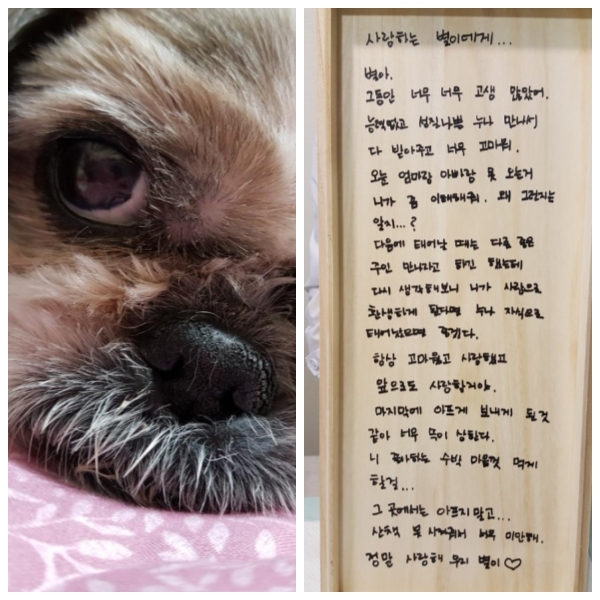 사랑하는 별이에게...
별아.
그동안 너무 너무 고생 많았어.
능력없고 성질나쁜 누나 만나서
다 받아주고 너무 고마워.
오늘 엄마랑 아빠랑 못 오는거
니가 좀 이해해줘. 왜 그런지는
알지...?
다음에 태어날 때는 다른 좋은
주인 만나라고 하긴 했는데
다시 생각해보니 니가 사람으로
환생하게 된다면 누나 자식으로
태어났으면 좋겠다.
항상 고마웠고 사랑했고
앞으로도 사랑할거야.
마지막에 아프게 보내게 된것
같아 너무 속이 상한다.
니 좋아하는 수박 마음껏 먹게
할걸...
그 곳에서는 아프지말고...
산책 못 시켜줘서 너무 미안해.
정말 사랑해 우리 별이♡